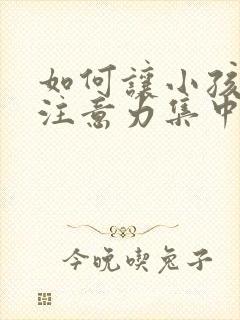 如何讓小孩
注意力集中
今晚喫兔子